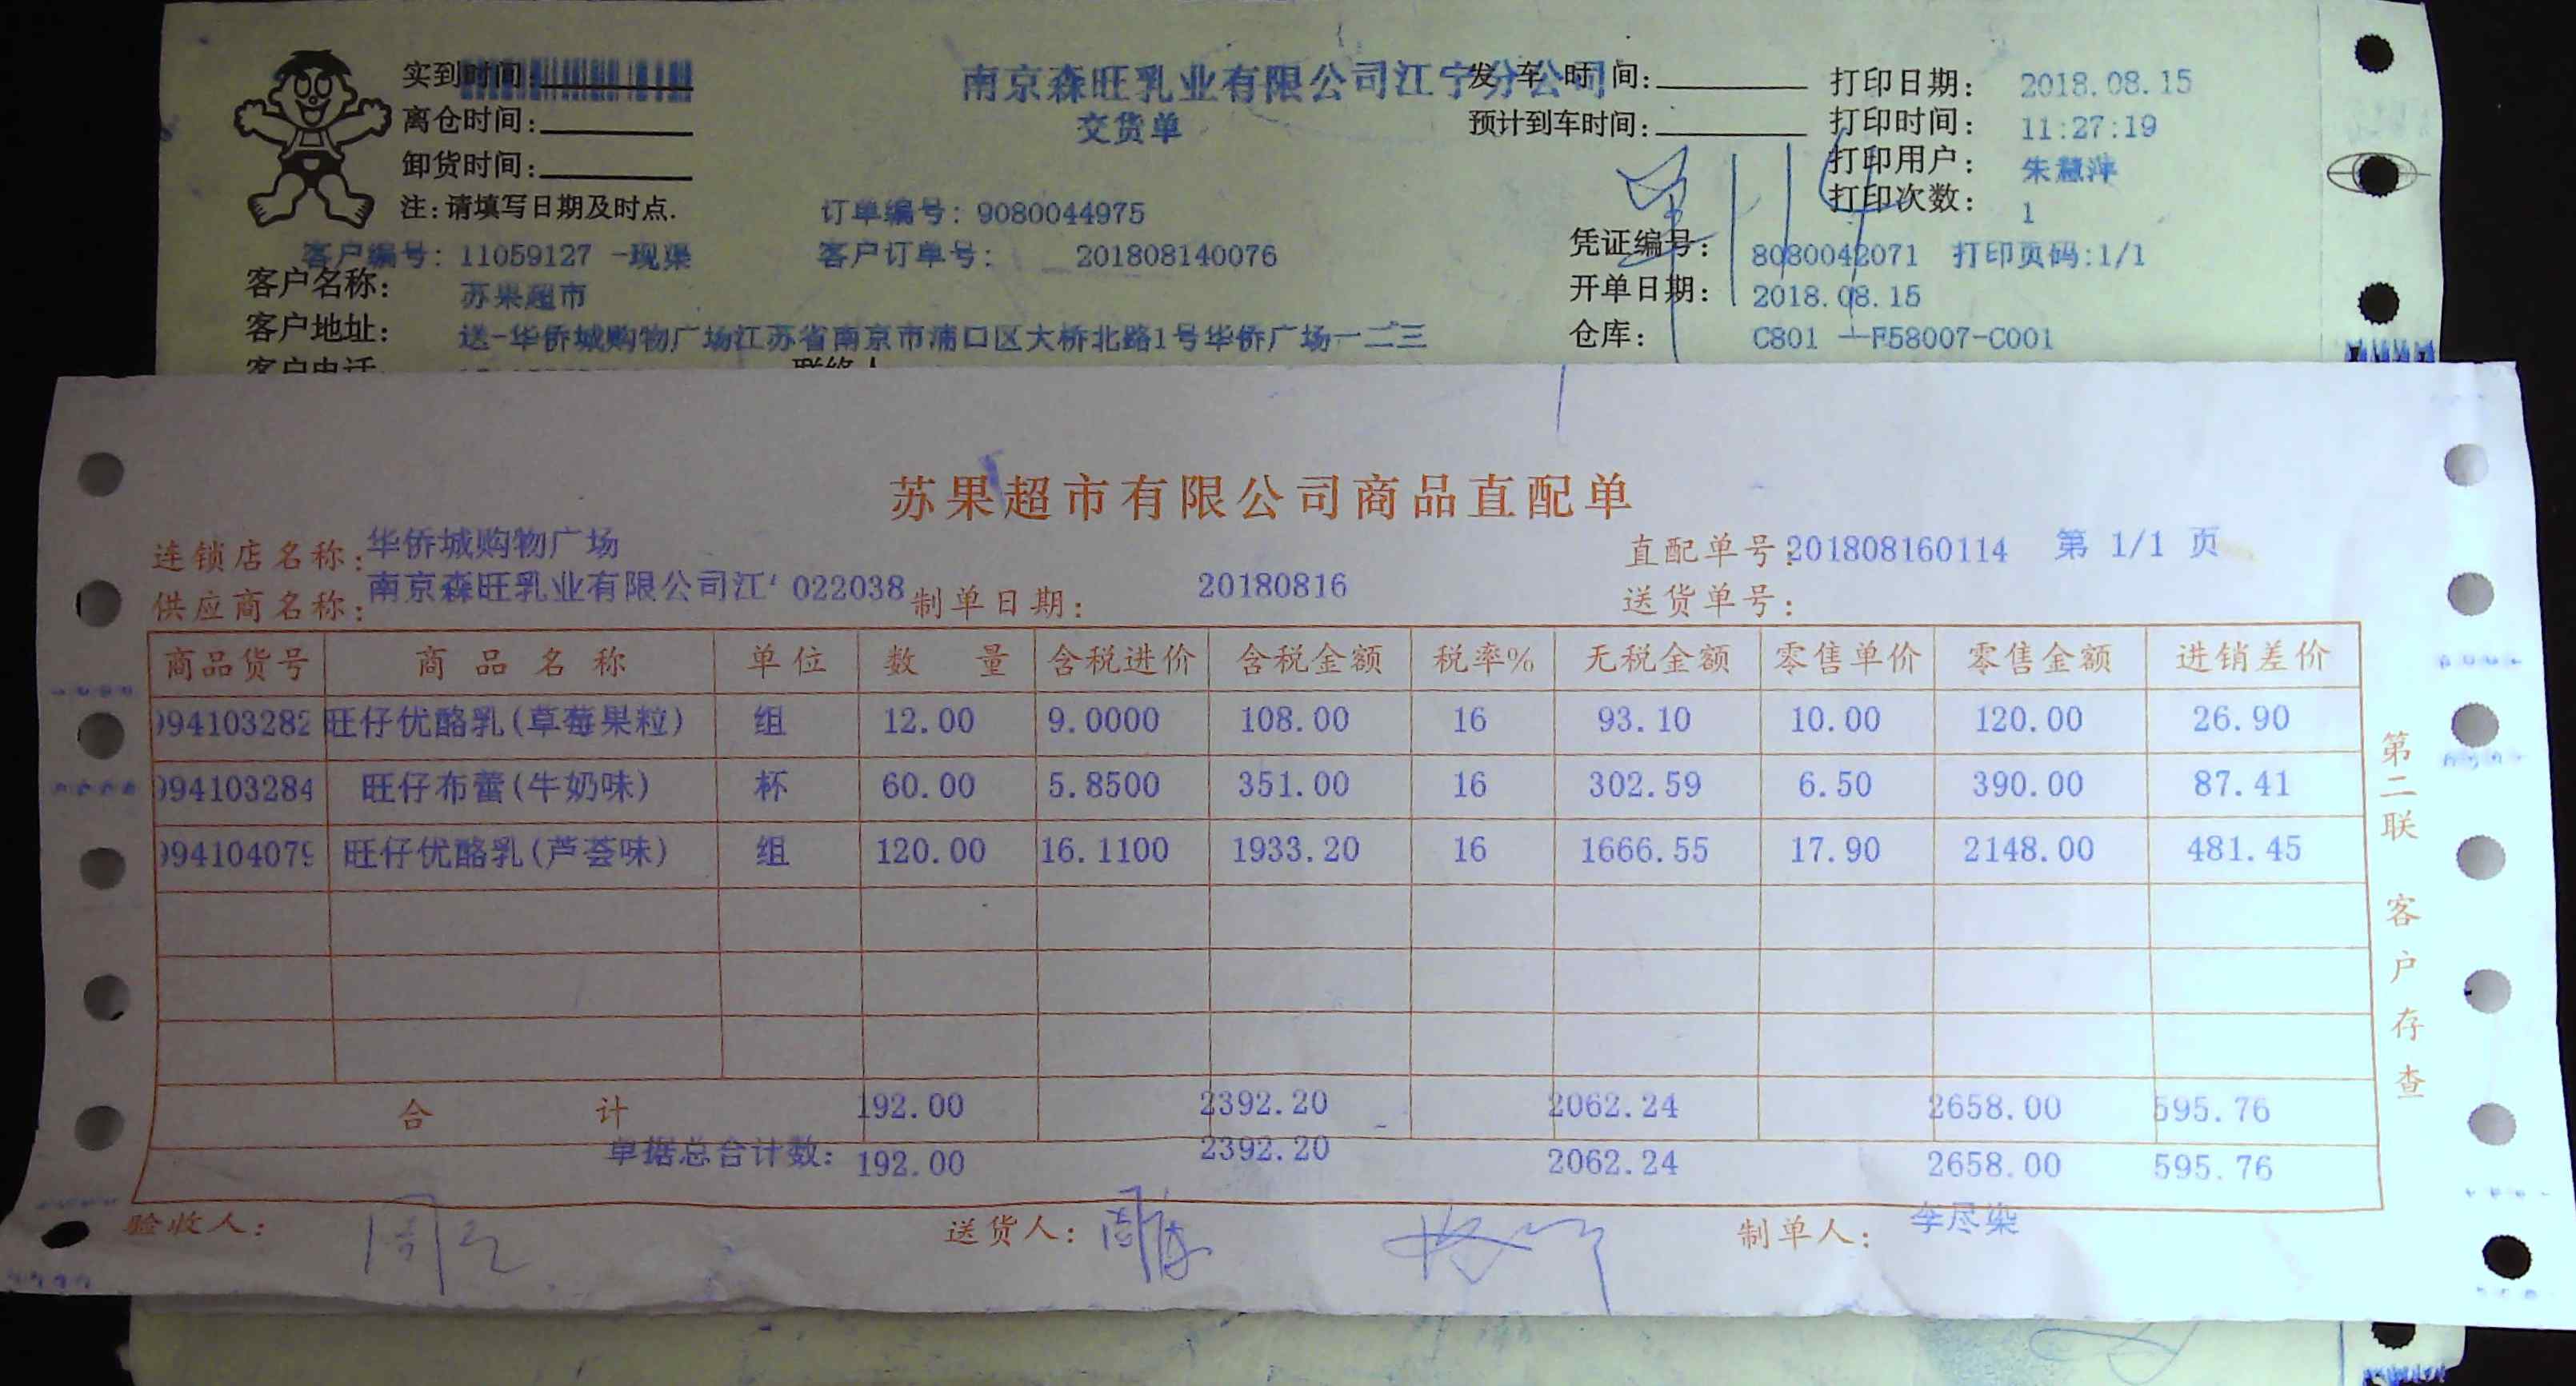 南京森旺乳业有限公司江宁分公司
交货单
实到时间
离仓时间:
卸货时间:
注:请填写日期及时点.
发车时间:
预计到车时间:
打印日期: 2018.08.15
打印时间: 11:27:19
打印用户: 朱慧萍
打印次数: 1
订单编号: 9080044975
客户编号: 11059127 -现渠 客户订单号: 201808140076
凭证编号: 8080042071 打印页码:1/1
客户名称: 苏果超市
开单日期: 2018.08.15
客户地址: 送-华侨城购物广场江苏省南京市浦口区大桥北路1号华侨广场一二三
仓库: C801 —F58007-C001
客户电话
联络人
苏果超市有限公司商品直配单
连锁店名称: 华侨城购物广场 直配单号: 201808160114 第 1/1 页
供应商名称: 南京森旺乳业有限公司江 022038 制单日期: 20180816 送货单号:
商品货号 商品名称 单位 数量 含税进价 含税金额 税率% 无税金额 零售单价 零售金额 进销差价
94103282 旺仔优酪乳(草莓果粒) 组 12.00 9.0000 108.00 16 93.10 10.00 120.00 26.90
94103284 旺仔布蕾(牛奶味) 杯 60.00 5.8500 351.00 16 302.59 6.50 390.00 87.41
94104079 旺仔优酪乳(芦荟味) 组 120.00 16.1100 1933.20 16 1666.55 17.90 2148.00 481.45
合计 192.00 2392.20 2062.24 2658.00 595.76
单据总合计数: 192.00 2392.20 2062.24 2658.00 595.76
验收人: 送货人: 制单人: 李尽染
第二联 客户存查